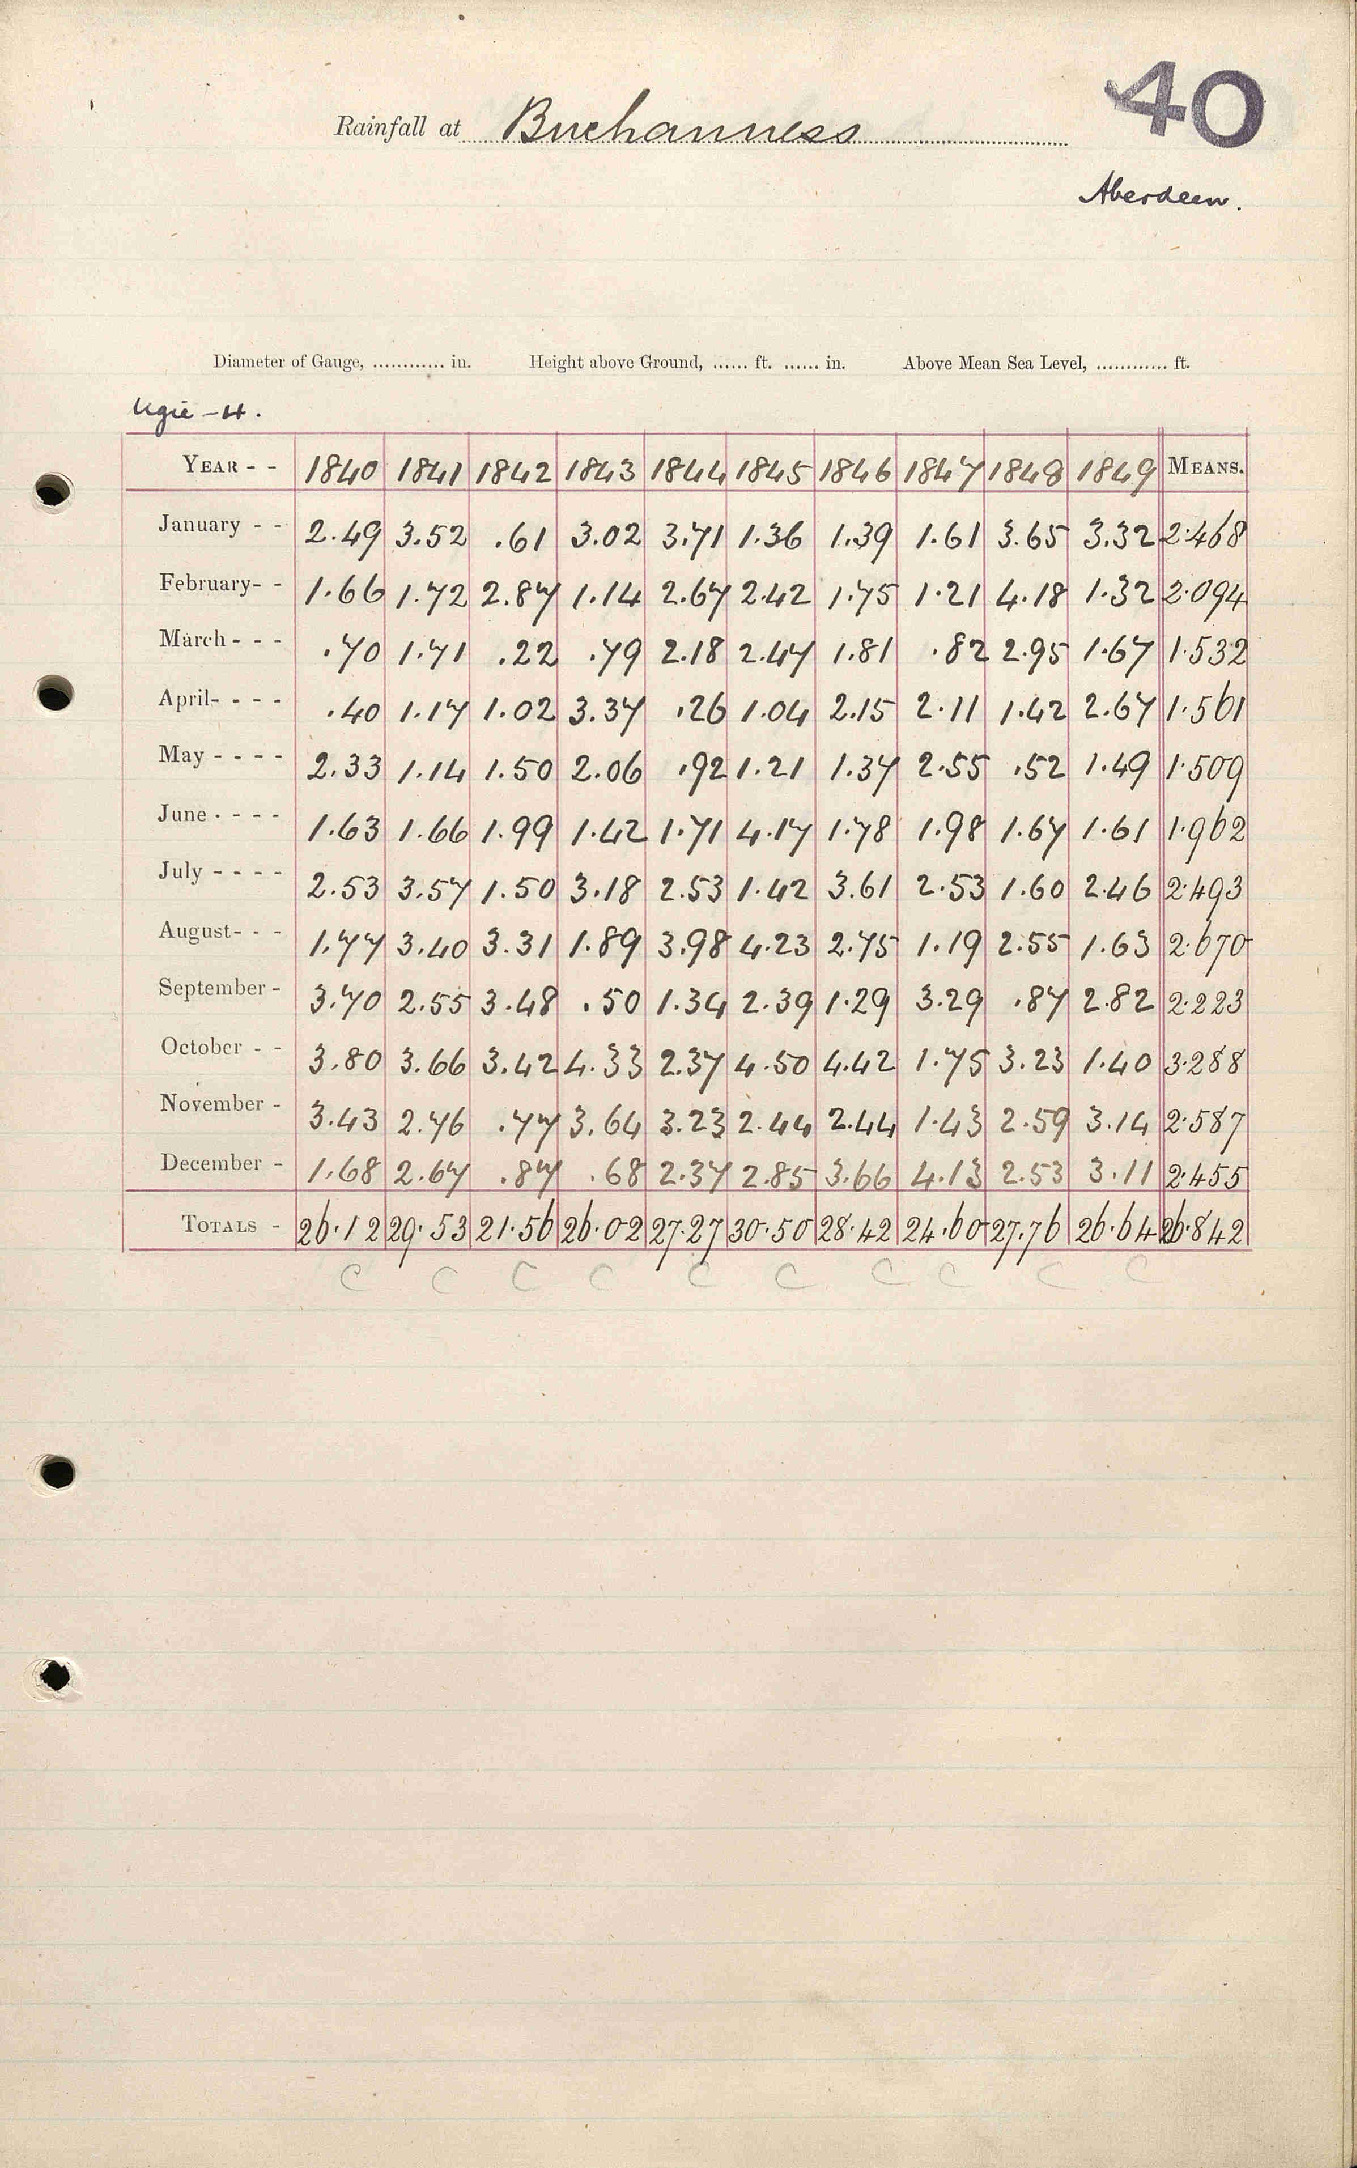 40
Rainfall at Buchanness
Aberdeen.
Diameter of Gauge, ............ in. Height above Ground, ...... ft. ...... in. Above Mean Sea Level, ............ ft.
Ugie - H.
YEAR - - 1840 1841 1842 1843 1844 1845 1846 1847 1848 1849 MEANS.
January - - 2.49 3.52 .61 3.02 3.71 1.36 1.39 1.61 3.65 3.32 2.468
February- - 1.66 1.72 2.87 1.14 2.67 2.42 1.75 1.21 4.18 1.32 2.094
March - - - .70 1.71 .22 .79 2.18 2.47 1.81 .82 2.95 1.67 1.532
April- - - - .40 1.17 1.02 3.37 .26 1.04 2.15 2.11 1.42 2.67 1.561
May - - - - 2.33 1.14 1.50 2.06 .92 1.21 1.37 2.55 .52 1.49 1.509
June - - - - 1.63 1.66 1.99 1.42 1.71 4.17 1.78 1.98 1.67 1.61 1.962
July - - - - 2.53 3.57 1.50 3.18 2.53 1.42 3.61 2.53 1.60 2.46 2.493
August- - - 1.77 3.40 3.31 1.89 3.98 4.23 2.75 1.19 2.55 1.63 2.670
September - 3.70 2.55 3.48 .50 1.34 2.39 1.29 3.29 .87 2.82 2.223
October - - 3.80 3.66 3.42 4.33 2.37 4.50 4.42 1.75 3.23 1.40 3.288
November - 3.43 2.76 .77 3.64 3.23 2.44 2.44 1.43 2.59 3.14 2.587
December - 1.68 2.67 .87 .68 2.37 2.85 3.66 4.13 2.53 3.11 2.455
TOTALS - 26.12 29.53 21.56 26.02 27.27 30.50 28.42 24.60 27.76 26.64 26.842
C C C C C C C C C C